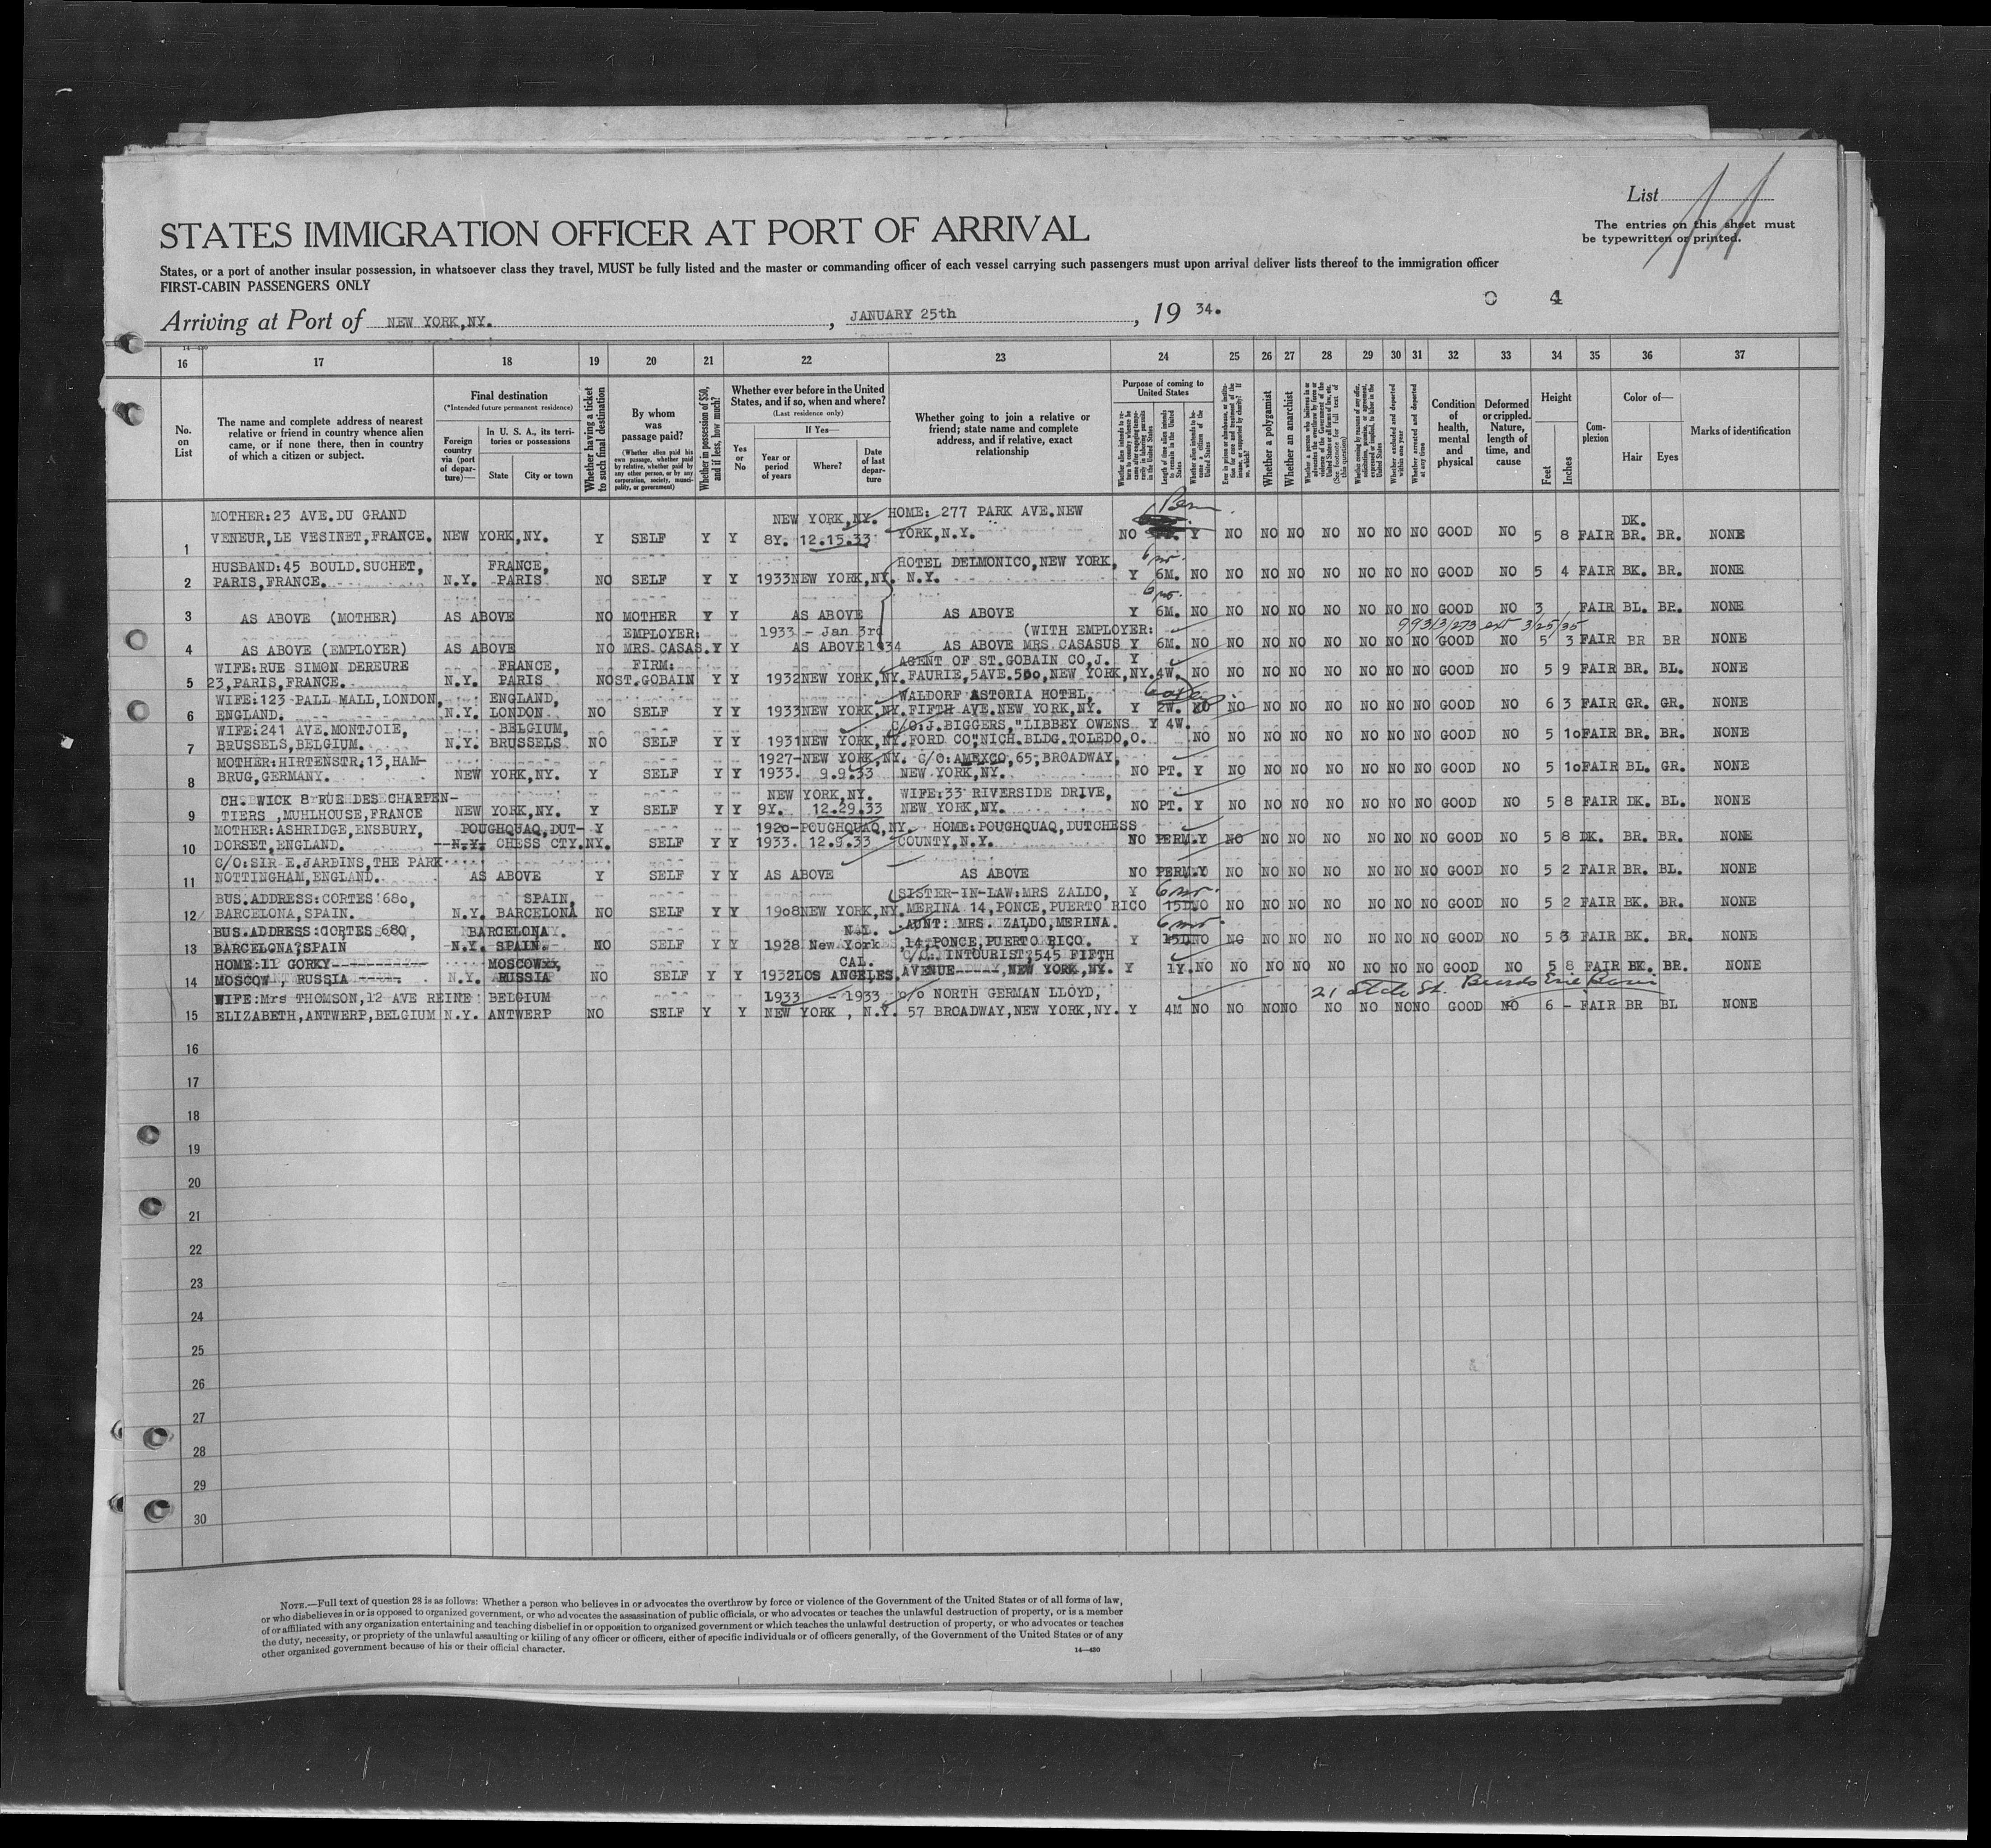 List
The entries on this sheet must
be typewritten or printed.
STATES IMMIGRATION OFFICER AT PORT OF ARRIVAL
States, or a port of another insular possession, in whatsoever class they travel, MUST be fully listed and the master or commanding officer of each vessel carrying such passengers must upon arrival deliver lists thereof to the immigration officer
FIRST-CABIN PASSENGERS ONLY
4
Arriving at Port of NEW YORK,NY. , JANUARY 25th , 19 34.
14—420
16 17 18 19 20 21 22 23 24 25 26 27 28 29 30 31 32 33 34 35 36 37
No. on List
The name and complete address of nearest relative or friend in country whence alien came, or if none there, then in country of which a citizen or subject.
Final destination
(*Intended future permanent residence)
Foreign country via (port of departure)—
In U. S. A., its territories or possessions
State City or town
Whether having a ticket to such final destination
By whom was passage paid?
(Whether alien paid his own passage, whether paid by relative, whether paid by any other person, or by any corporation, society, municipality, or government)
Whether in possession of $50, and if less, how much?
Whether ever before in the United States, and if so, when and where?
(Last residence only)
Yes or No
If Yes—
Year or period of years Where? Date of last departure
Whether going to join a relative or friend; state name and complete address, and if relative, exact relationship
Purpose of coming to United States
Length of time alien intends to remain in the United States
Whether alien intends to become a citizen of the United States
Whether a polygamist
Whether an anarchist
Whether arrested and deported at any time
Condition of health, mental and physical
Deformed or crippled. Nature, length of time, and cause
Height
Feet Inches
Complexion
Color of—
Hair Eyes
Marks of identification
MOTHER:23 AVE.DU GRAND NEW YORK,NY. HOME: 277 PARK AVE.NEW Perm. DK.
1 VENEUR,LE VESINET,FRANCE. NEW YORK,NY. Y SELF Y Y 8Y. 12.15.33 YORK,N.Y. NO Y NO NO NO NO NO NO NO GOOD NO 5 8 FAIR BR. BR. NONE
HUSBAND:45 BOULD.SUCHET, FRANCE, HOTEL DELMONICO,NEW YORK, 6 mo.
2 PARIS,FRANCE. N.Y. PARIS NO SELF Y Y 1933NEW YORK,NY. N.Y. Y 6M. NO NO NO NO NO NO NO NO GOOD NO 5 4 FAIR BK. BR. NONE
6 mo.
3 AS ABOVE (MOTHER) AS ABOVE NO MOTHER Y Y AS ABOVE AS ABOVE Y 6M. NO NO NO NO NO NO NO NO GOOD NO 3 FAIR BL. BR. NONE
EMPLOYER: 1933 - Jan 3rd (WITH EMPLOYER: 99313/273 ext 3/25/35
4 AS ABOVE (EMPLOYER) AS ABOVE NO MRS.CASAS. Y Y AS ABOVE1934 AS ABOVE MRS.CASASUS Y 6M. NO NO NO NO NO NO NO NO GOOD NO 5 3 FAIR BR BR NONE
WIFE:RUE SIMON DEREURE FRANCE, FIRM: AGENT OF ST.GOBAIN CO,J. Y
5 23,PARIS,FRANCE. N.Y. PARIS NO ST.GOBAIN Y Y 1932NEW YORK,NY. FAURIE,5AVE.500,NEW YORK,NY. 4W. NO NO NO NO NO NO NO NO GOOD NO 5 9 FAIR BR. BL. NONE
WIFE:123 PALL MALL,LONDON, ENGLAND, WALDORF ASTORIA HOTEL,
6 ENGLAND. N.Y. LONDON NO SELF Y Y 1933NEW YORK,NY. FIFTH AVE.NEW YORK,NY. Y 2W. NO NO NO NO NO NO NO NO GOOD NO 6 3 FAIR GR. GR. NONE
WIFE:241 AVE.MONTJOIE, BELGIUM, C/O:J.BIGGERS,"LIBBEY OWENS Y 4W.
7 BRUSSELS,BELGIUM. N.Y. BRUSSELS NO SELF Y Y 1931NEW YORK,NY. FORD CO",NICH.BLDG.TOLEDO,O. NO NO NO NO NO NO NO NO GOOD NO 5 10 FAIR BR. BR. NONE
MOTHER:HIRTENSTR.13,HAM- 1927-NEW YORK,NY. C/O:AMEXCO,65,BROADWAY,
8 BRUG,GERMANY. NEW YORK,NY. Y SELF Y Y 1933. 9.9.33 NEW YORK,NY. NO PT. Y NO NO NO NO NO NO NO GOOD NO 5 10 FAIR BL. GR. NONE
CH. WICK 8 RUE DES CHARPEN- NEW YORK,NY. WIFE:33 RIVERSIDE DRIVE,
9 TIERS ,MUHLHOUSE,FRANCE NEW YORK,NY. Y SELF Y Y 9Y. 12.29.33 NEW YORK,NY. NO PT. Y NO NO NO NO NO NO NO GOOD NO 5 8 FAIR DK. BL. NONE
MOTHER:ASHRIDGE,ENSBURY, POUGHQUAQ,DUT- Y 1920-POUGHQUAQ,NY. HOME:POUGHQUAQ,DUTCHESS
10 DORSET,ENGLAND. N.Y. CHESS CTY.NY. SELF Y Y 1933. 12.9.33 COUNTY,N.Y. NO PERM.Y NO NO NO NO NO NO NO GOOD NO 5 8 DK. BR. BR. NONE
C/O:SIR E.JARDINS,THE PARK
11 NOTTINGHAM,ENGLAND. AS ABOVE Y SELF Y Y AS ABOVE AS ABOVE NO PERM.Y NO NO NO NO NO NO NO GOOD NO 5 2 FAIR BR. BL. NONE
BUS.ADDRESS:CORTES 680, SPAIN, SISTER-IN-LAW:MRS ZALDO, Y 6 mo.
12 BARCELONA,SPAIN. N.Y. BARCELONA NO SELF Y Y 1908NEW YORK,NY. MERINA 14,PONCE,PUERTO RICO 15D NO NO NO NO NO NO NO NO GOOD NO 5 2 FAIR BK. BR. NONE
BUS.ADDRESS:CORTES 680, BARCELONA. N.Y. AUNT: MRS. ZALDO,MERINA. 6 mo.
13 BARCELONA,SPAIN N.Y. SPAIN. NO SELF Y Y 1928 New York 14,PONCE,PUERTO RICO. Y 15D NO NO NO NO NO NO NO NO GOOD NO 5 3 FAIR BK. BR. NONE
HOME:11 GORKY MOSCOW, CAL. C/O: INTOURIST,545 FIFTH
14 MOSCOW, RUSSIA N.Y. RUSSIA NO SELF Y Y 1932LOS ANGELES. AVENUE NEW YORK,NY. Y 1Y. NO NO NO NO NO NO NO NO GOOD NO 5 8 FAIR BK. BR. NONE
WIFE:Mrs THOMSON,12 AVE REINE BELGIUM 1933 - 1933 c/o NORTH GERMAN LLOYD, 21 State St.
15 ELIZABETH,ANTWERP,BELGIUM N.Y. ANTWERP NO SELF Y Y NEW YORK , N.Y. 57 BROADWAY,NEW YORK,NY. Y 4M NO NO NO NO NO NO NO NO GOOD NO 6 - FAIR BR BL NONE
16
17
18
19
20
21
22
23
24
25
26
27
28
29
30
NOTE.—Full text of question 28 is as follows: Whether a person who believes in or advocates the overthrow by force or violence of the Government of the United States or of all forms of law,
or who disbelieves in or is opposed to organized government, or who advocates the assassination of public officials, or who advocates or teaches the unlawful destruction of property, or is a member
of or affiliated with any organization entertaining and teaching disbelief in or opposition to organized government or which teaches the unlawful destruction of property, or who advocates or teaches
the duty, necessity, or propriety of the unlawful assaulting or killing of any officer or officers, either of specific individuals or of officers generally, of the Government of the United States or of any
other organized government because of his or their official character.
14—420